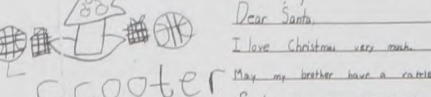 Dear Santa,
I love Christmas very much.
May my brother have a rattle
crooter